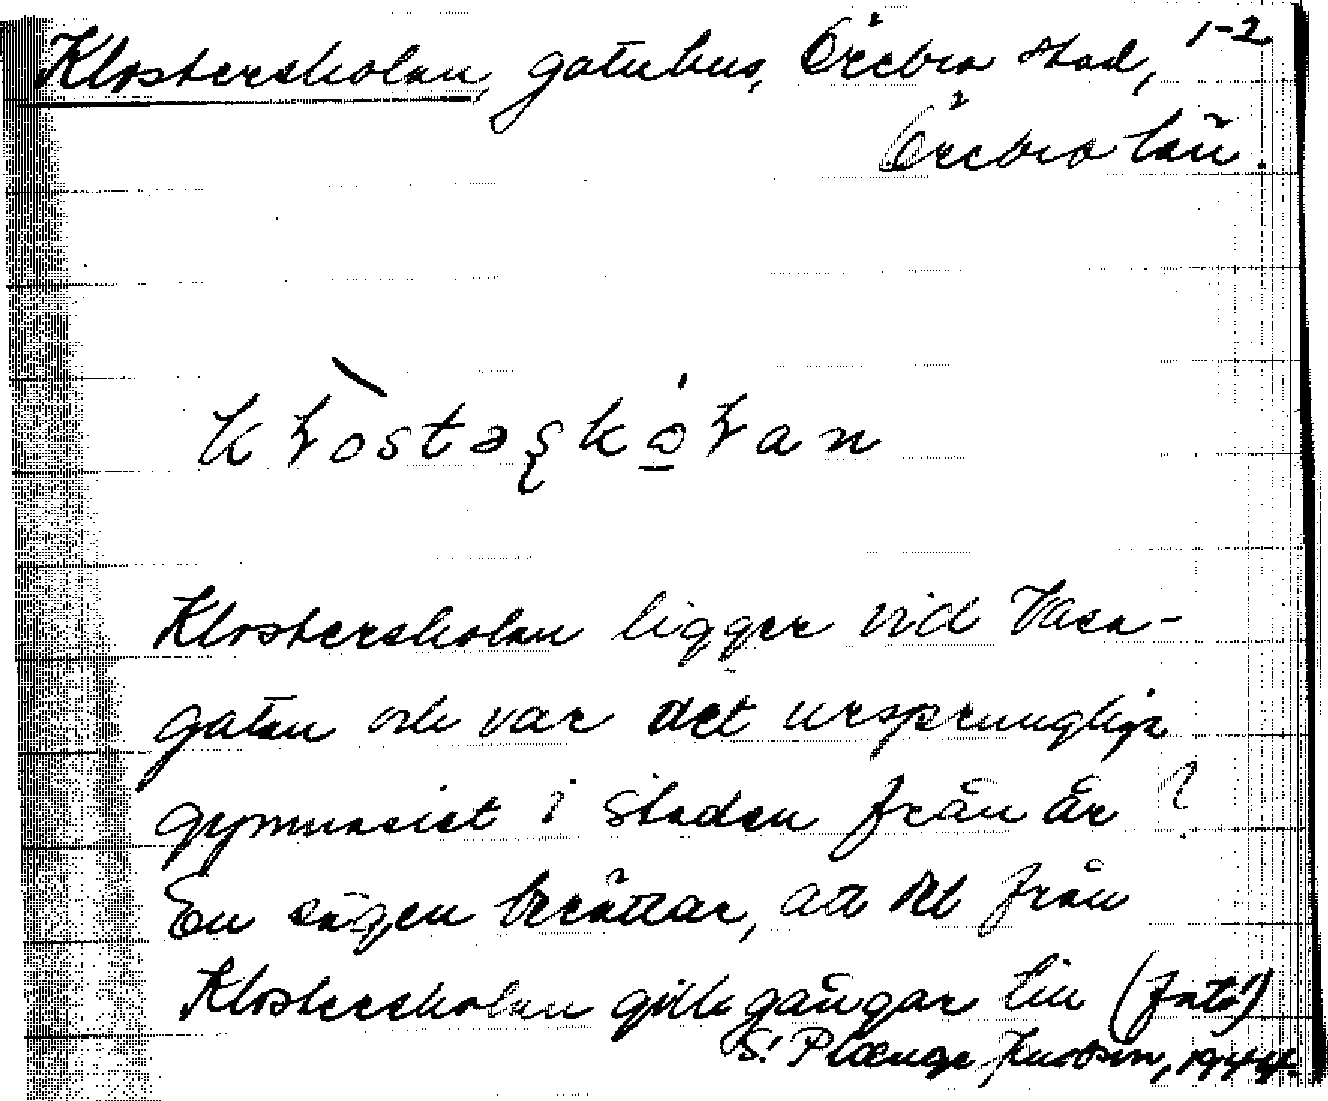 Klosterskolan, gatuhus, Örebro stad, 1-2
Örebro län.
Klosterskolan ligger vid Vasa-
gatan och var det ursprungliga
gymnasiet i staden från år ?
En sägen berättar, att det från
Klosterskolan gått gångar till (foto!)
S. Plænge Jacobson, 1944.